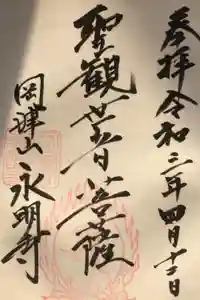 奉拝令和二年四月十二日
聖観世音菩薩
岡津山永明寺